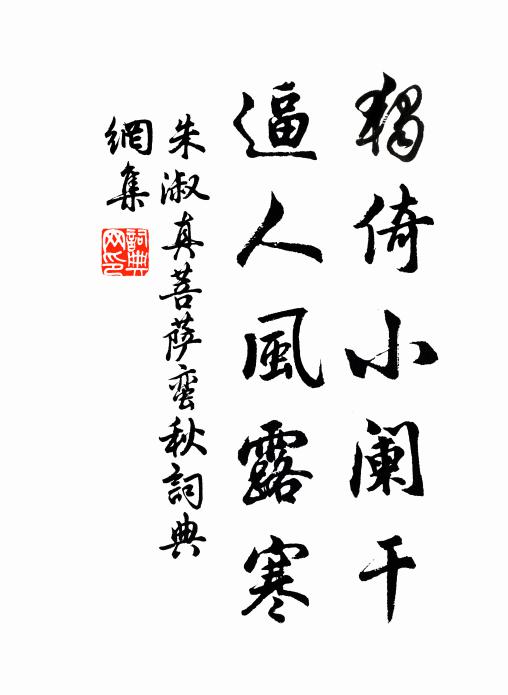 獨倚小闌干
逼人風露寒
朱淑真菩薩蛮秋詞典
網集
詞典網印